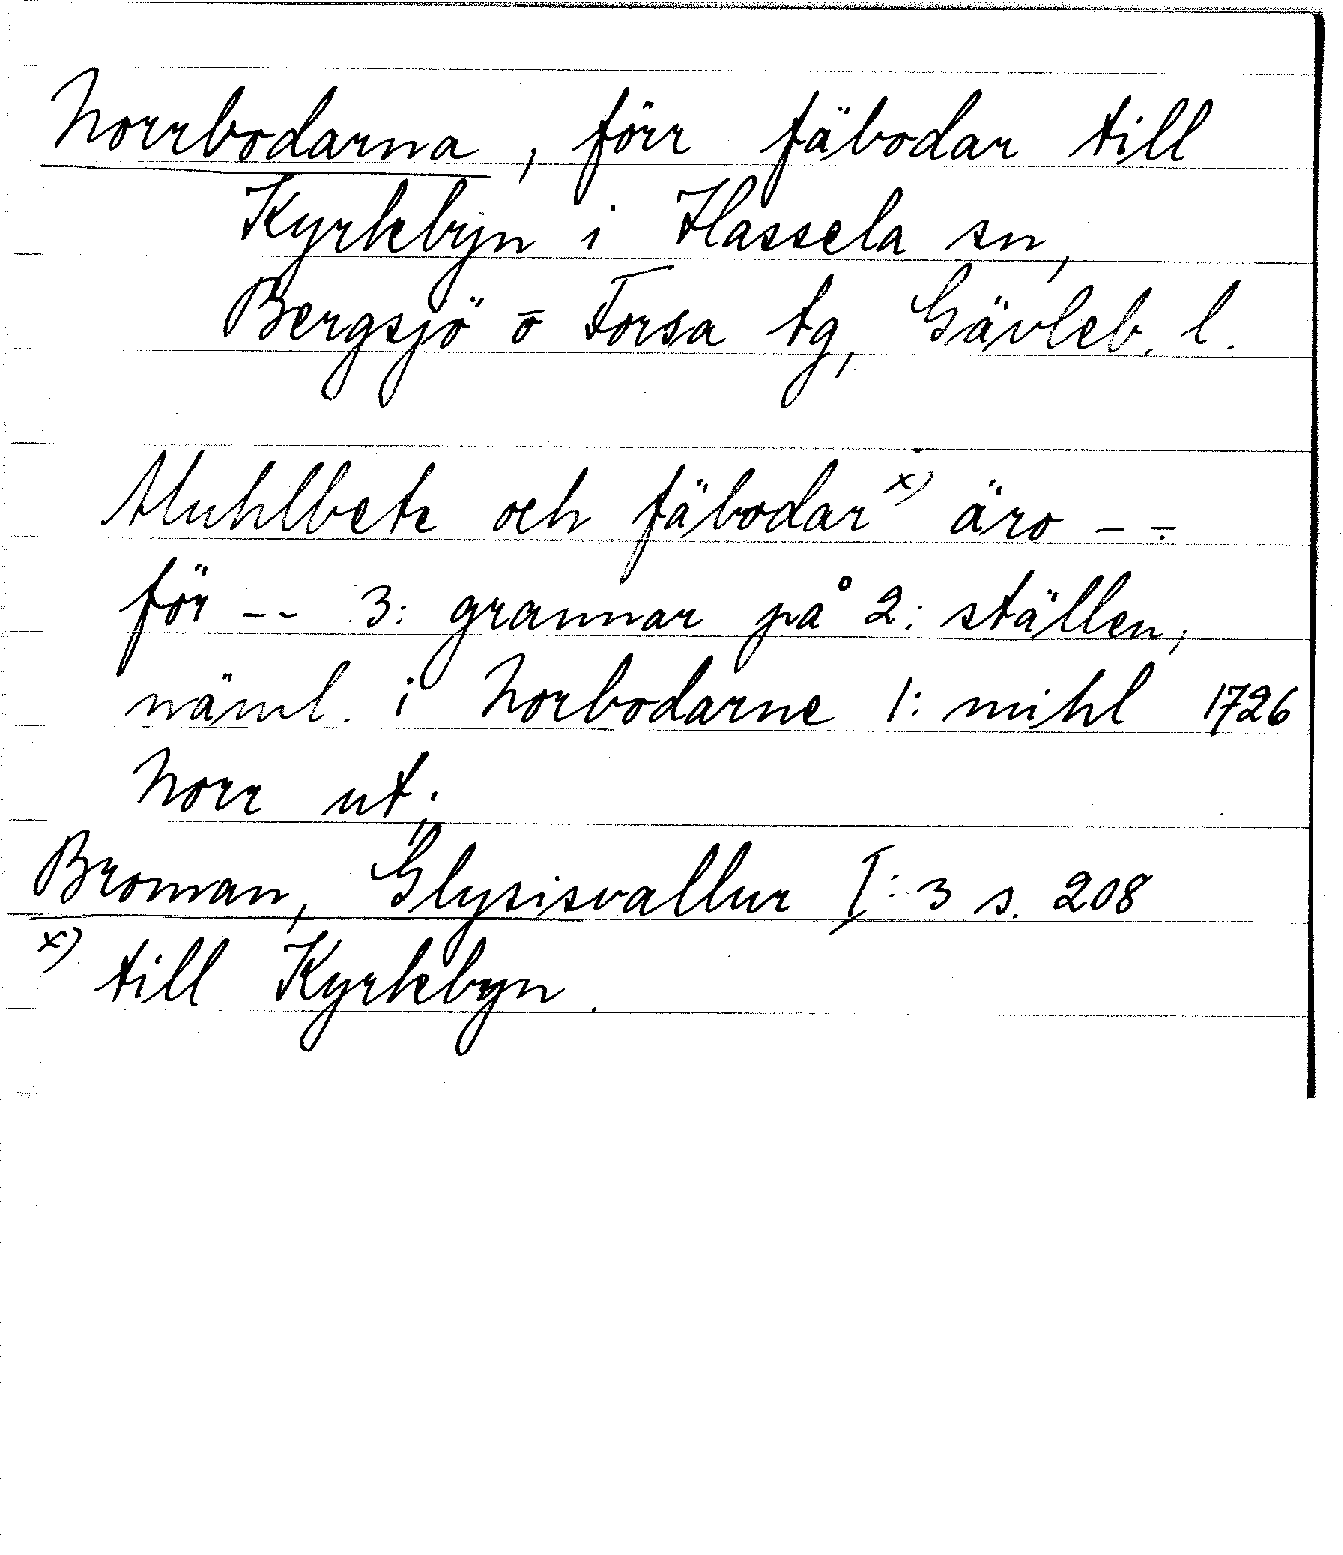 Norrbodarna, förr fäbodar till
Kyrkbyn i Hassela sn,
Bergsjö o Forsa tg, Gävleb. l.
Muhlbete och fäbodar x) äro - -
för - - 3: grannar på 2: ställen,
näml. i Norbodarne 1: mihl 1726
Norr ut;
Broman, Glysisvallur I:3 s. 208
x) till Kyrkbyn.